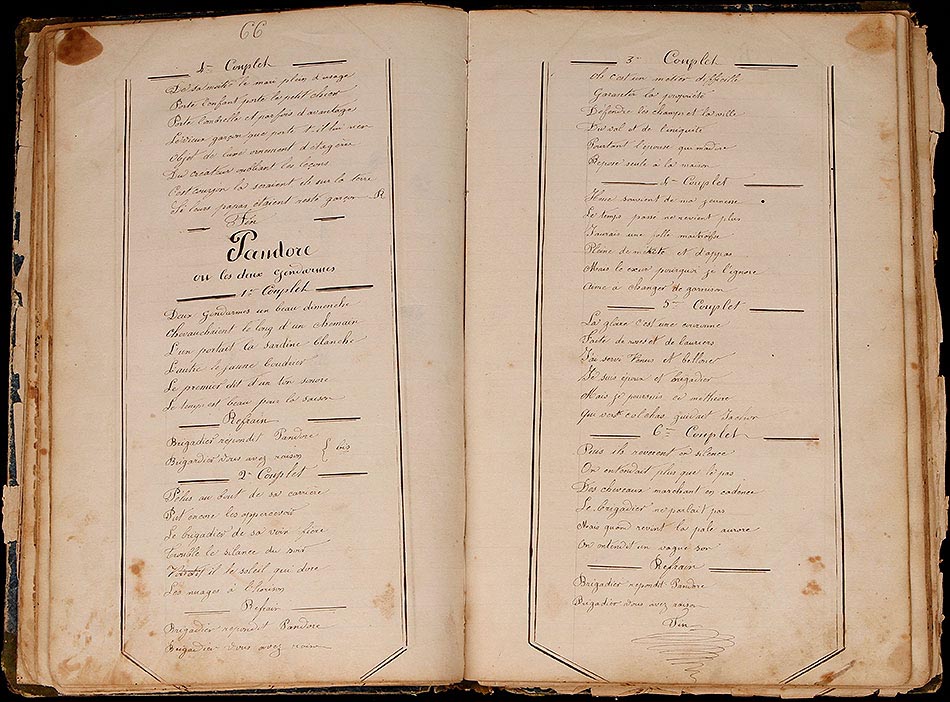 66
4me Couplet
De sa moitié le mari plein d'usage
Porte l'enfant porte le petit chien
Porte l'ombrelle et par fois d'avantage
Le vieux garçon que porte t-il lui rien
Objet de luxe ornement d'étagère
Du createur oubliant les leçons
Cest la seraient ils sur la terre
Si leurs papas étaient resté garçon R
Fin
Pandore
ou les deux Gendarmes
1er Couplet
Deux Gendarmes un beau dimanche
Chevauchaient le long d'un chemain
L'un portait la sardine blanche
L'autre le jaune boudrier
Le premier dit d'un ton sonore
Le temps est beau pour la saison
Refrain
Brigadier repondit Pandore
Brigardier vous avez raison
bis
2e Couplet
Pélus au bout de sa carrière
Put encore les appercevoir
Le brigadier de sa voix fière
Trouble le silance du soir
il le soleil qui dore
Les nuages à l'horison
Refrain
Brigadier repondit Pandore
Brigadier vous avez raison
3me Couplet
Ah c'est un metier difficile
Garantir la propriété
Défendre les champs et la ville
Du vol et de l'iniquité
Pourtant l'epouse qui m'adore
Repose seule à la maison
4me Couplet
Il me souvient de ma jeunesse
Le temps passé ne revient plus
J'avais une folle maitresse
Pleine de mérite et d'appas
Mais le cœur pourquoi je l'ignore
Aime à changer de garnison
5me Couplet
La gloire c'est une couronne
Faite de roses et de lauriers
J'ai servi Vénus et bellone
Je suis époux et brigadier
Mais je poursuis ce
Qui vers colchos guidait Jasson
6me Couplet
Puis ils reverent en silence
On entendait plus que le pas
Des cheveaux marchant en cadence
Le brigadier ne parlait pas
Mais quand revint la pale aurore
On entendit un vague son
Refrain
Brigadier repondit Pandore
Brigadier vous avez raison
Fin